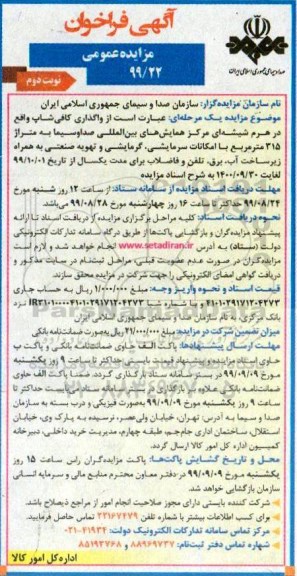 آگهی فراخوان
مزایده عمومی
۹۹/۲۲
نوبت دوم
صدا و سیمای جمهوری اسلامی ایران
نام سازمان مزایده‌گزار: سازمان صدا و سیمای جمهوری اسلامی ایران
موضوع مزایده یک مرحله‌ای: عبارت است از واگذاری کافی‌شاپ واقع
در هرم شیشه‌ای مرکز همایش‌های بین‌المللی صداوسیما به متراژ
۳۱۵ مترمربع با امکانات سرمایشی، گرمایشی و تهویه صنعتی به همراه
زیرساخت آب، برق، تلفن و فاضلاب برای مدت یکسال از تاریخ ۹۹/۱۰/۰۱
لغایت ۱۴۰۰/۰۹/۳۰ به شرح اسناد مزایده
مهلت دریافت اسناد مزایده از سامانه ستاد: از ساعت ۱۲ روز شنبه مورخ
۹۹/۰۸/۲۴ حداکثر تا ساعت ۱۶ روز چهارشنبه مورخ ۹۹/۰۸/۲۸ می‌باشد.
نحوه دریافت اسناد: کلیه مراحل برگزاری مزایده از دریافت اسناد تا ارائه
پیشنهاد مزایده‌گران و بازگشایی پاکت‌ها از طریق درگاه سامانه تدارکات الکترونیکی
دولت (ستاد) به آدرس www.setadiran.ir انجام خواهد شد و لازم است
مزایده‌گران در صورت عدم عضویت قبلی، مراحل ثبت‌نام در سایت مذکور و
دریافت گواهی امضای الکترونیکی را جهت شرکت در مزایده محقق سازند.
قیمت اسناد و نحوه واریز وجه: مبلغ ۱/۰۰۰/۰۰۰ ریال به حساب جاری
بانک مرکزی به نام سازمان صدا و سیمای جمهوری اسلامی ایران
میزان تضمین شرکت در مزایده: مبلغ ۲۱/۰۰۰/۰۰۰ ریال به صورت ضمانت‌نامه بانکی
مهلت ارسال پیشنهادها: پاکت الف حاوی ضمانت‌نامه بانکی و پاکت ب
حاوی اسناد مزایده و پیشنهاد قیمت بایستی حداکثر تا ساعت ۹ روز یکشنبه
مورخ ۹۹/۰۹/۰۹ در بستر سامانه ستاد بارگذاری گردد. ضمناً پاکت الف حاوی
ضمانت‌نامه بانکی علاوه بر بارگذاری در سامانه ستاد می‌بایست حداکثر تا
ساعت ۹ روز یکشنبه مورخ ۹۹/۰۹/۰۹ به‌صورت فیزیکی و دربسته به سازمان
صدا و سیما به آدرس: تهران، خیابان ولی‌عصر، نرسیده به پارک وی، خیابان
استقلال، ساختمان اداری جام‌جم، طبقه چهارم، مدیریت خرید داخلی، دبیرخانه
کمیسیون اداره کل امور کالا ارسال گردد.
محل و تاریخ گشایش پاکت‌ها: پاکت مزایده‌گران راس ساعت ۱۵ روز
یکشنبه مورخ ۹۹/۰۹/۰۹ در دفتر معاون محترم منابع مالی و سرمایه انسانی
سازمان بازگشایی خواهد شد.
شرکت کننده بایستی دارای مجوز صلاحیت انجام امور از مراجع ذیصلاح باشد.
برای کسب اطلاعات بیشتر با شماره تلفن ۲۲۱۶۷۴۷۹ تماس حاصل فرمایید.
مرکز تماس سامانه تدارکات الکترونیک دولت: ۴۱۹۳۴-۰۲۱
شماره تماس دفتر ثبت‌نام: ۸۸۹۶۹۷۳۷ و ۸۵۱۹۳۷۶۸
اداره کل امور کالا